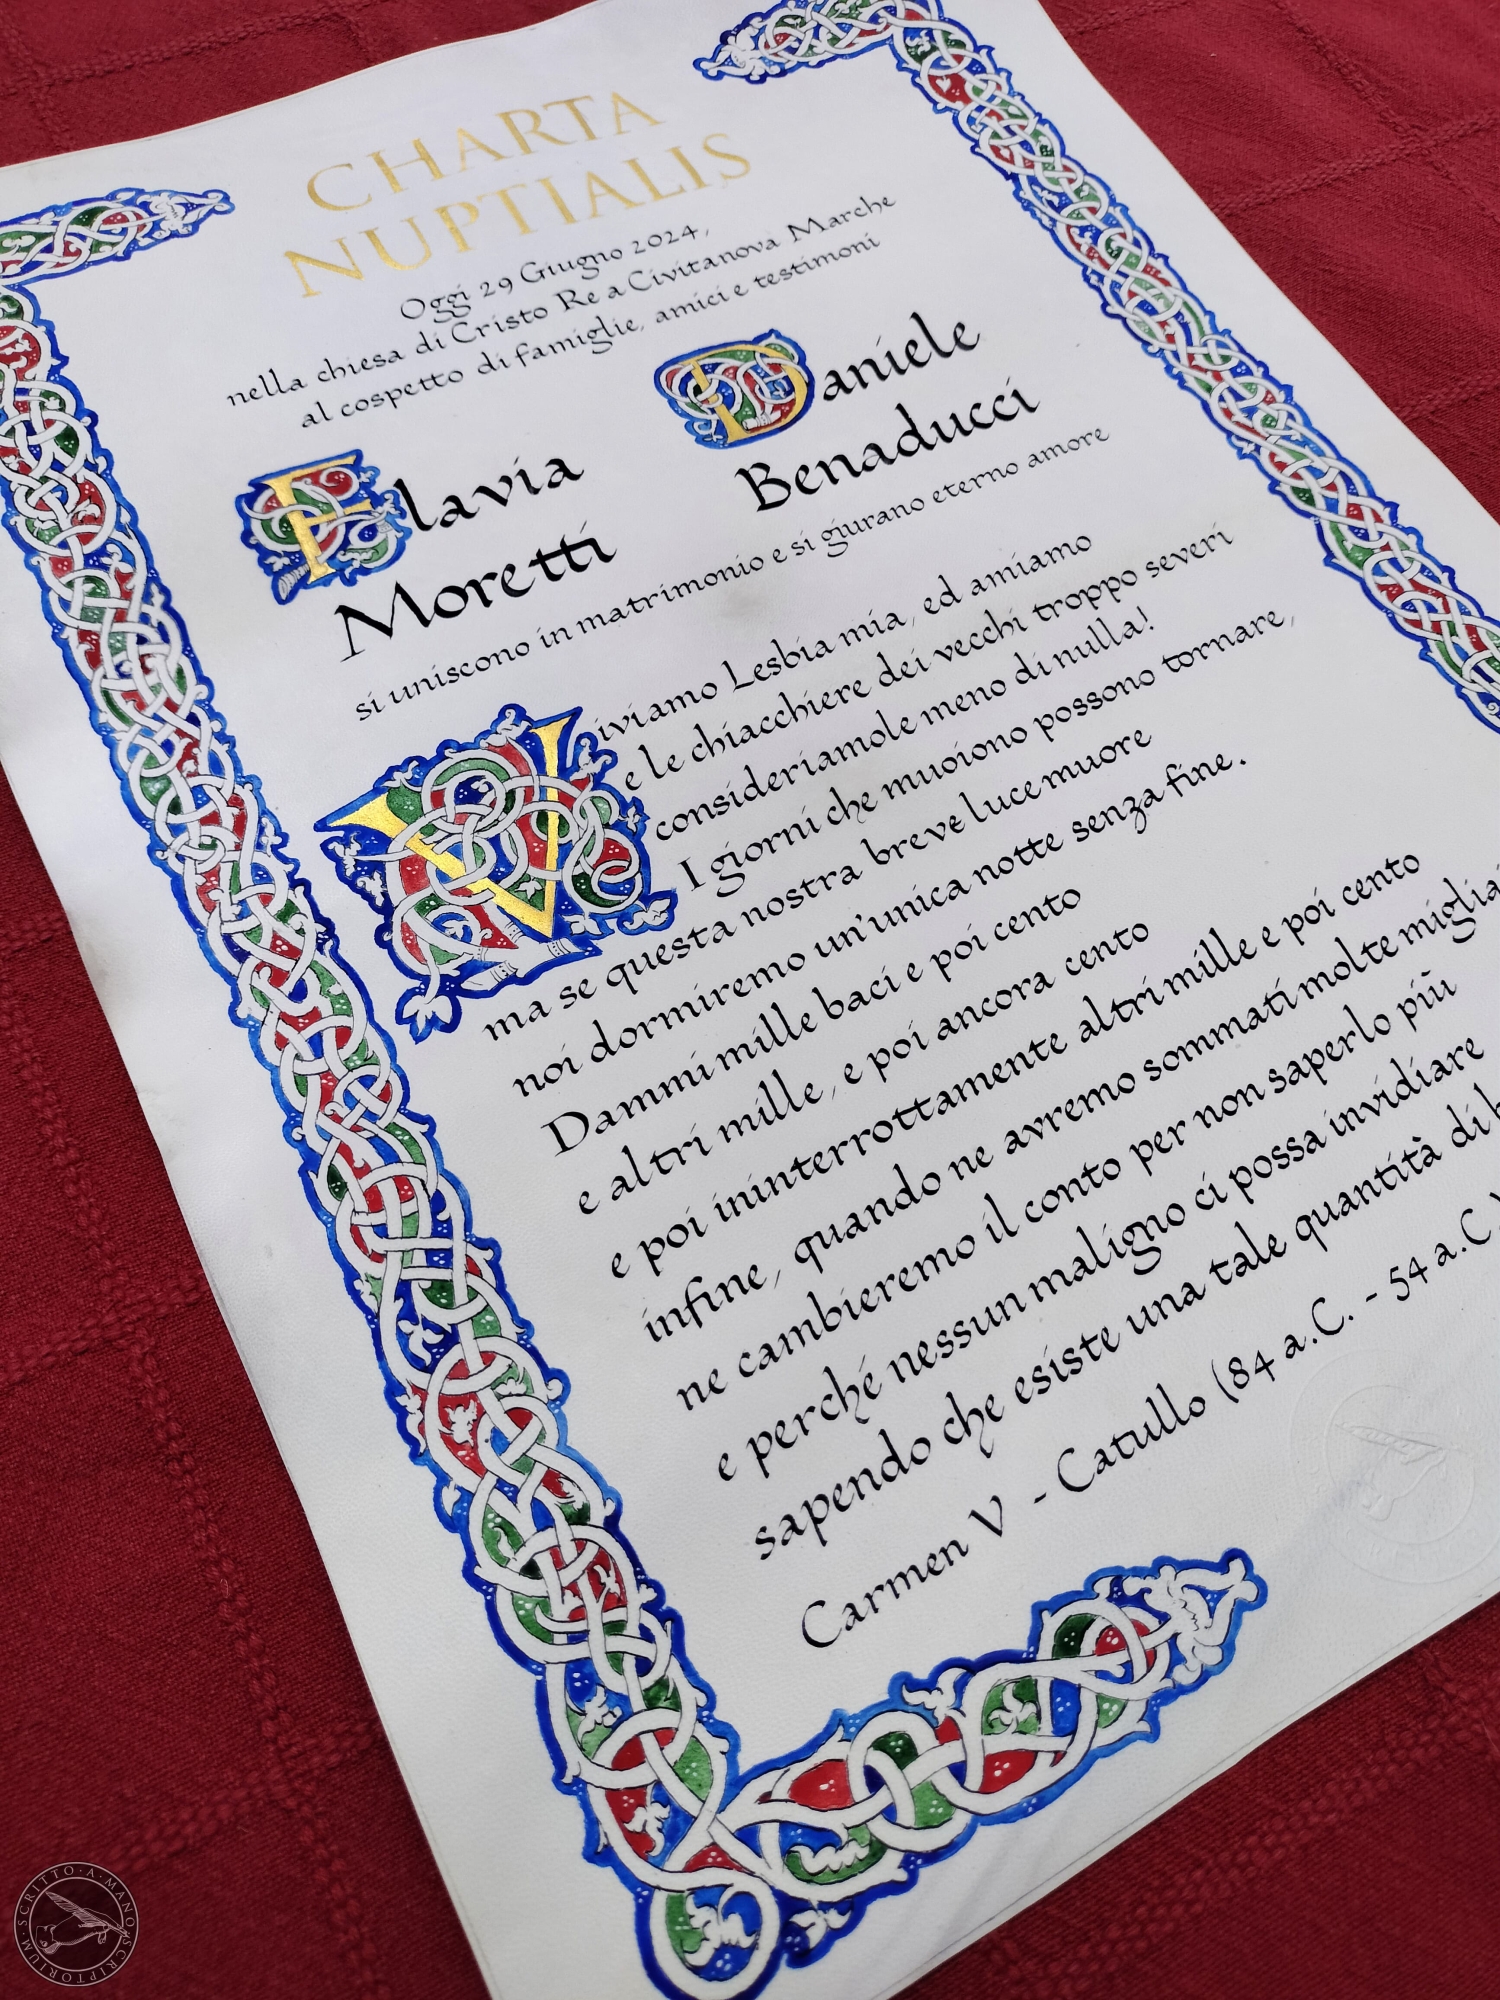 CHARTA
NUPTIALIS
Oggi 29 Giugno 2024,
nella chiesa di Cristo Re a Civitanova Marche
al cospetto di famiglie, amici e testimoni
Flavia
Moretti
Daniele
Benaducci
si uniscono in matrimonio e si giurano eterno amore
Viviamo Lesbia mia, ed amiamo
e le chiacchiere dei vecchi troppo severi
consideriamole meno di nulla!
I giorni che muoiono possono tornare,
ma se questa nostra breve luce muore
noi dormiremo un'unica notte senza fine.
Dammi mille baci e poi cento
e altri mille, e poi ancora cento
e poi ininterrottamente altri mille e poi cento
infine, quando ne avremo sommati molte
ne cambieremo il conto per non saperlo più
e perché nessun maligno ci possa invidiare
sapendo che esiste una tale quantità di
Carmen V - Catullo (84 a.C. - 54 a.C.
SCRITTO·A·MANO·SCRIPTORIUM·